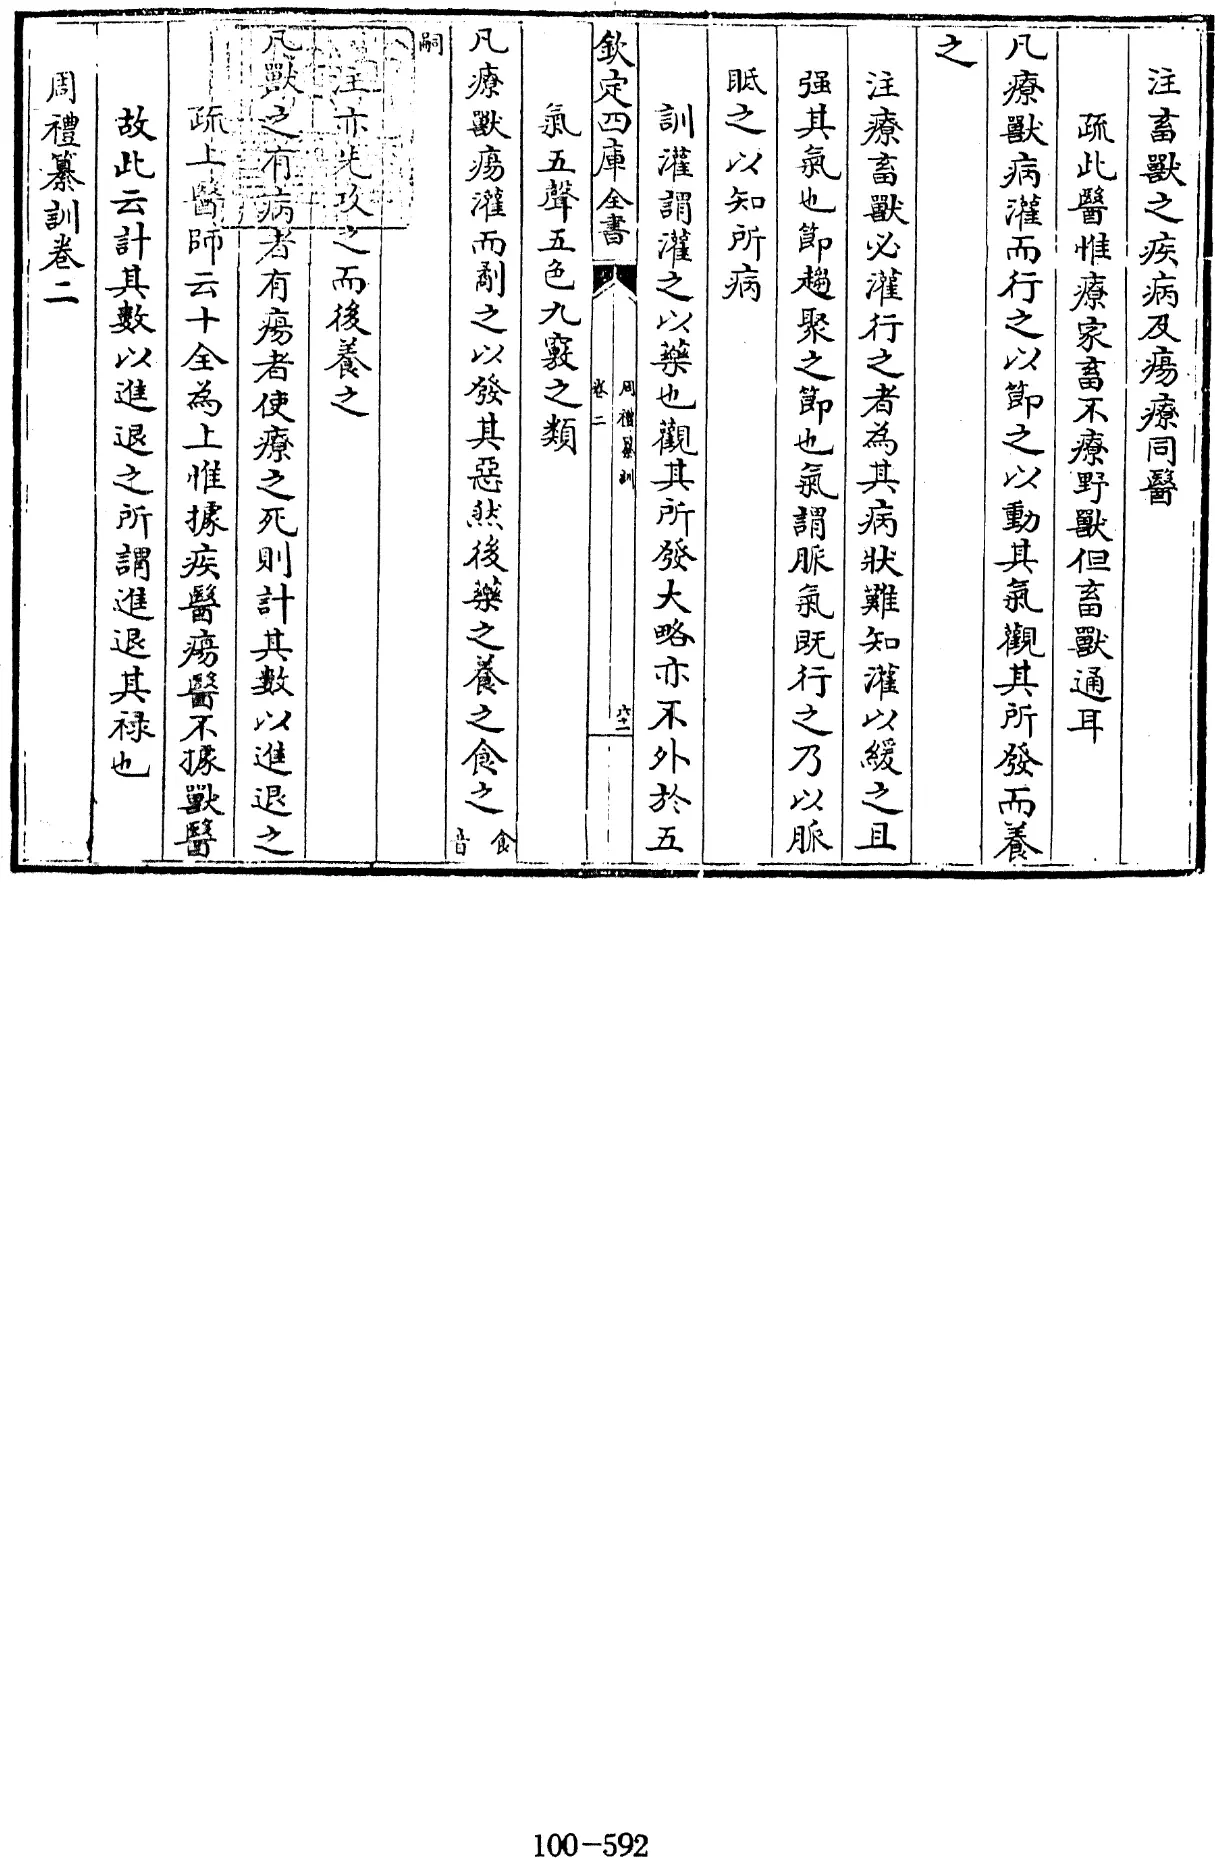 注畜獸之疾病及瘍療同醫
疏此醫惟療家畜不療野獸但畜獸通耳
凡療獸病灌而行之以節之以動其氣觀其所發而養
之
注療畜獸必灌行之者為其病狀難知灌以緩之且
强其氣也節趨聚之節也氣謂脈氣既行之乃以脈
眡之以知所病
訓灌謂灌之以藥也觀其所發大略亦不外於五
欽定四庫全書
周禮纂訓
卷二
六十二
氣五聲五色九竅之類
凡療獸瘍灌而劀之以發其惡然後藥之養之食之食音
嗣
注亦先攻之而後養之
凡獸之有病者有瘍者使療之死則計其數以進退之
疏上醫師云十全為上惟據疾醫瘍醫不據獸醫
故此云計其數以進退之所謂進退其祿也
周禮纂訓卷二
100-592